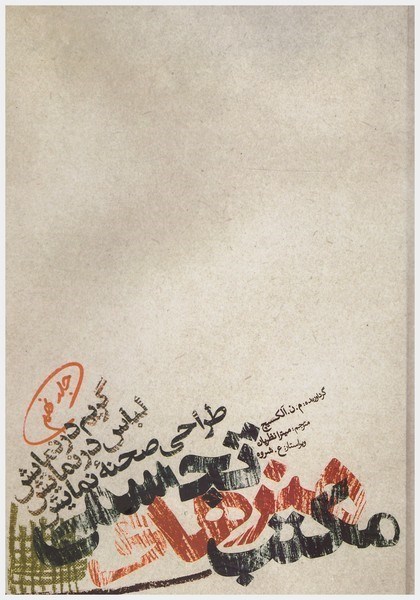 مکتب
هنرهای
تجسمی
جلد نهم
گریم در نمایش
لباس در نمایش
طراحی صحنهٔ نمایش
گردآورنده: م. ن. آلکسیچ
مترجم:
ویراستار: ع.